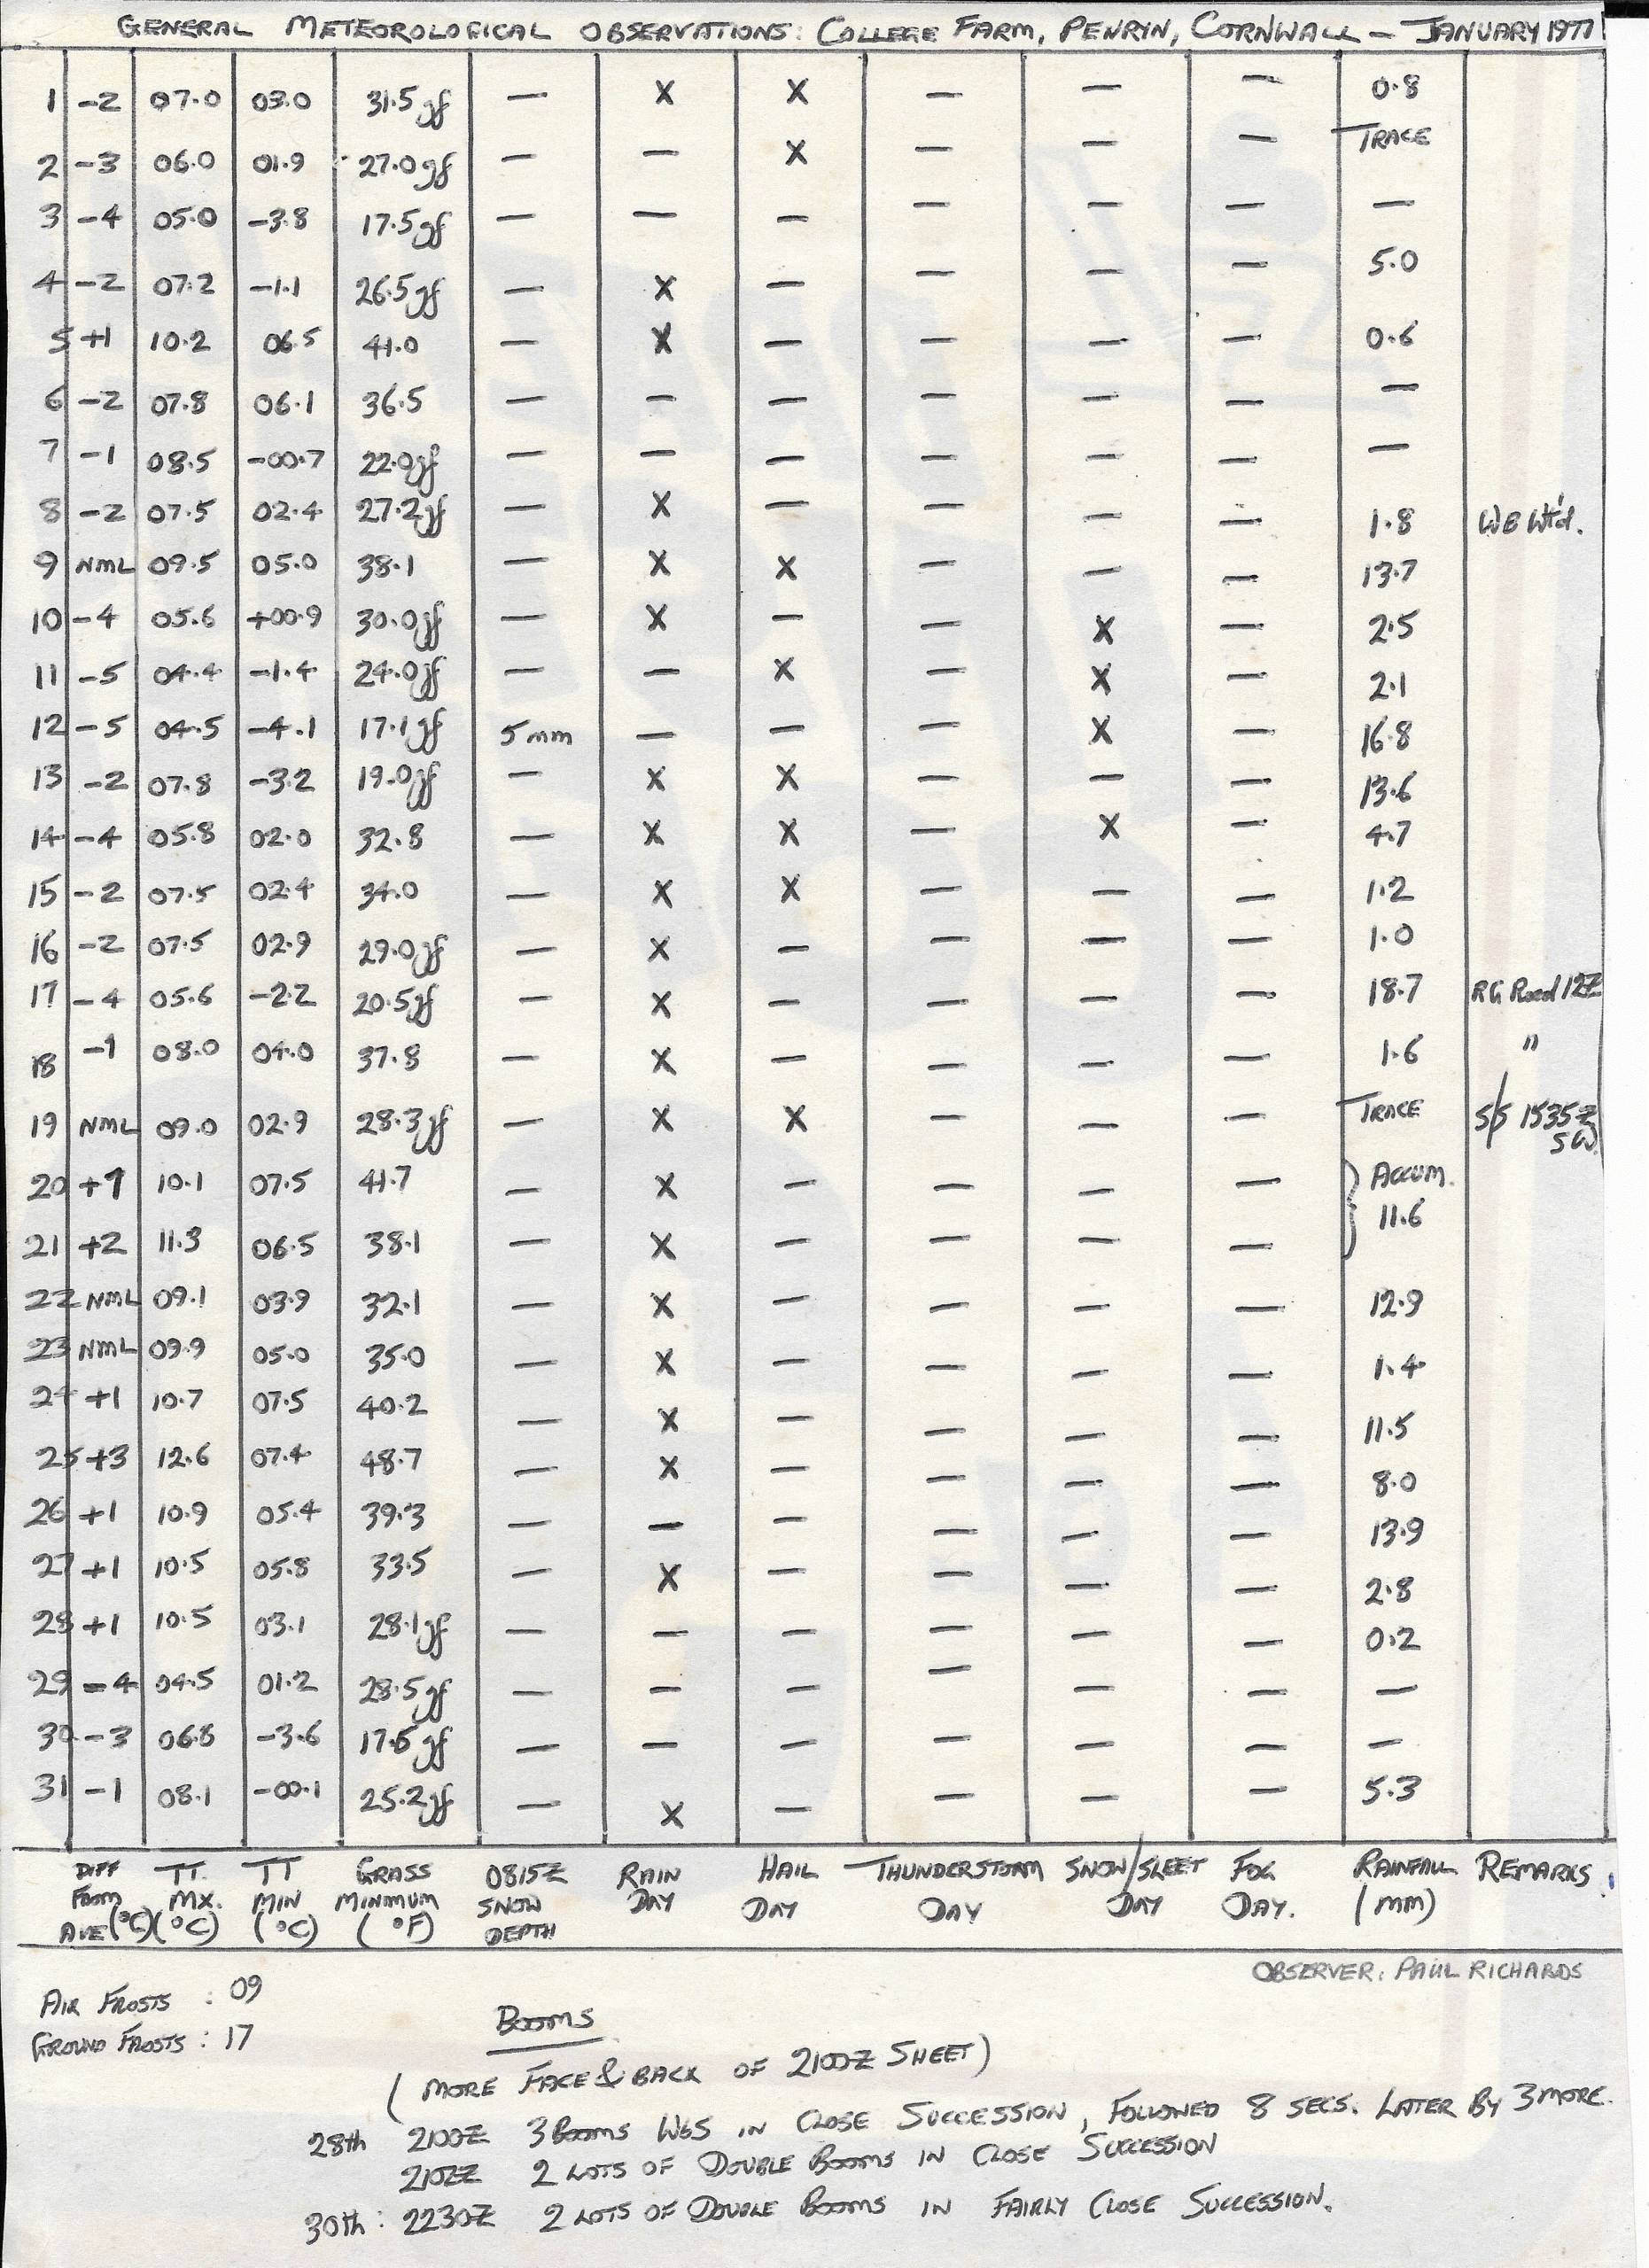 GENERAL METEOROLOGICAL OBSERVATIONS: COLLEGE FARM, PENRYN, CORNWALL – JANUARY 1977
1 -2 07.0 03.0 31.5gf — X X — — — 0.8
2 -3 06.0 01.9 27.0gf — — X — — — TRACE
3 -4 05.0 -3.8 17.5gf — — — — — — —
4 -2 07.2 -1.1 26.5gf — X — — — — 5.0
5 +1 10.2 06.5 41.0 — X — — — — 0.6
6 -2 07.8 06.1 36.5 — — — — — — —
7 -1 08.5 -00.7 22.0gf — — — — — — —
8 -2 07.5 02.4 27.2gf — X — — — — 1.8 WB Wt'd.
9 NML 09.5 05.0 38.1 — X X — — — 13.7
10 -4 05.6 +00.9 30.0gf — X — — X — 2.5
11 -5 04.4 -1.4 24.0gf — — X — X — 2.1
12 -5 04.5 -4.1 17.1gf 5mm — — — X — 16.8
13 -2 07.8 -3.2 19.0gf — X X — — — 13.6
14 -4 05.8 02.0 32.8 — X X — X — 4.7
15 -2 07.5 02.4 34.0 — X X — — — 1.2
16 -2 07.5 02.9 29.0gf — X — — — — 1.0
17 -4 05.6 -2.2 20.5gf — X — — — — 18.7 RG Read 12Z
18 -1 08.0 04.0 37.8 — X — — — — 1.6 "
19 NML 09.0 02.9 28.3gf — X X — — — TRACE S/S 1535Z
SW
20 +1 10.1 07.5 41.7 — X — — — — ACCUM.
11.6
21 +2 11.3 06.5 38.1 — X — — — —
22 NML 09.1 03.9 32.1 — X — — — — 12.9
23 NML 09.9 05.0 35.0 — X — — — — 1.4
24 +1 10.7 07.5 40.2 — X — — — — 11.5
25 +3 12.6 07.4 48.7 — X — — — — 8.0
26 +1 10.9 05.4 39.3 — — — — — — 13.9
27 +1 10.5 05.8 33.5 — X — — — — 2.8
28 +1 10.5 03.1 28.1gf — — — — — — 0.2
29 -4 04.5 01.2 28.5gf — — — — — — —
30 -3 06.8 -3.6 17.5gf — — — — — — —
31 -1 08.1 -00.1 25.2gf — X — — — — 5.3
DIFF TT. TT GRASS 0815Z RAIN HAIL THUNDERSTORM SNOW/SLEET FOG RAINFALL REMARKS
FROM MX. MIN MINIMUM SNOW DAY DAY DAY DAY DAY. (MM)
AVE(°C) (°C) (°C) (°F) DEPTH
OBSERVER: PAUL RICHARDS
AIR FROSTS : 09
GROUND FROSTS : 17
BOOMS
(MORE FACE & BACK OF 2100Z SHEET)
28th 2100Z 3 BOOMS IN CLOSE SUCCESSION, FOLLOWED 8 SECS. LATER BY 3 MORE.
2102Z 2 LOTS OF DOUBLE BOOMS IN CLOSE SUCCESSION
30th: 2230Z 2 LOTS OF DOUBLE BOOMS IN FAIRLY CLOSE SUCCESSION.